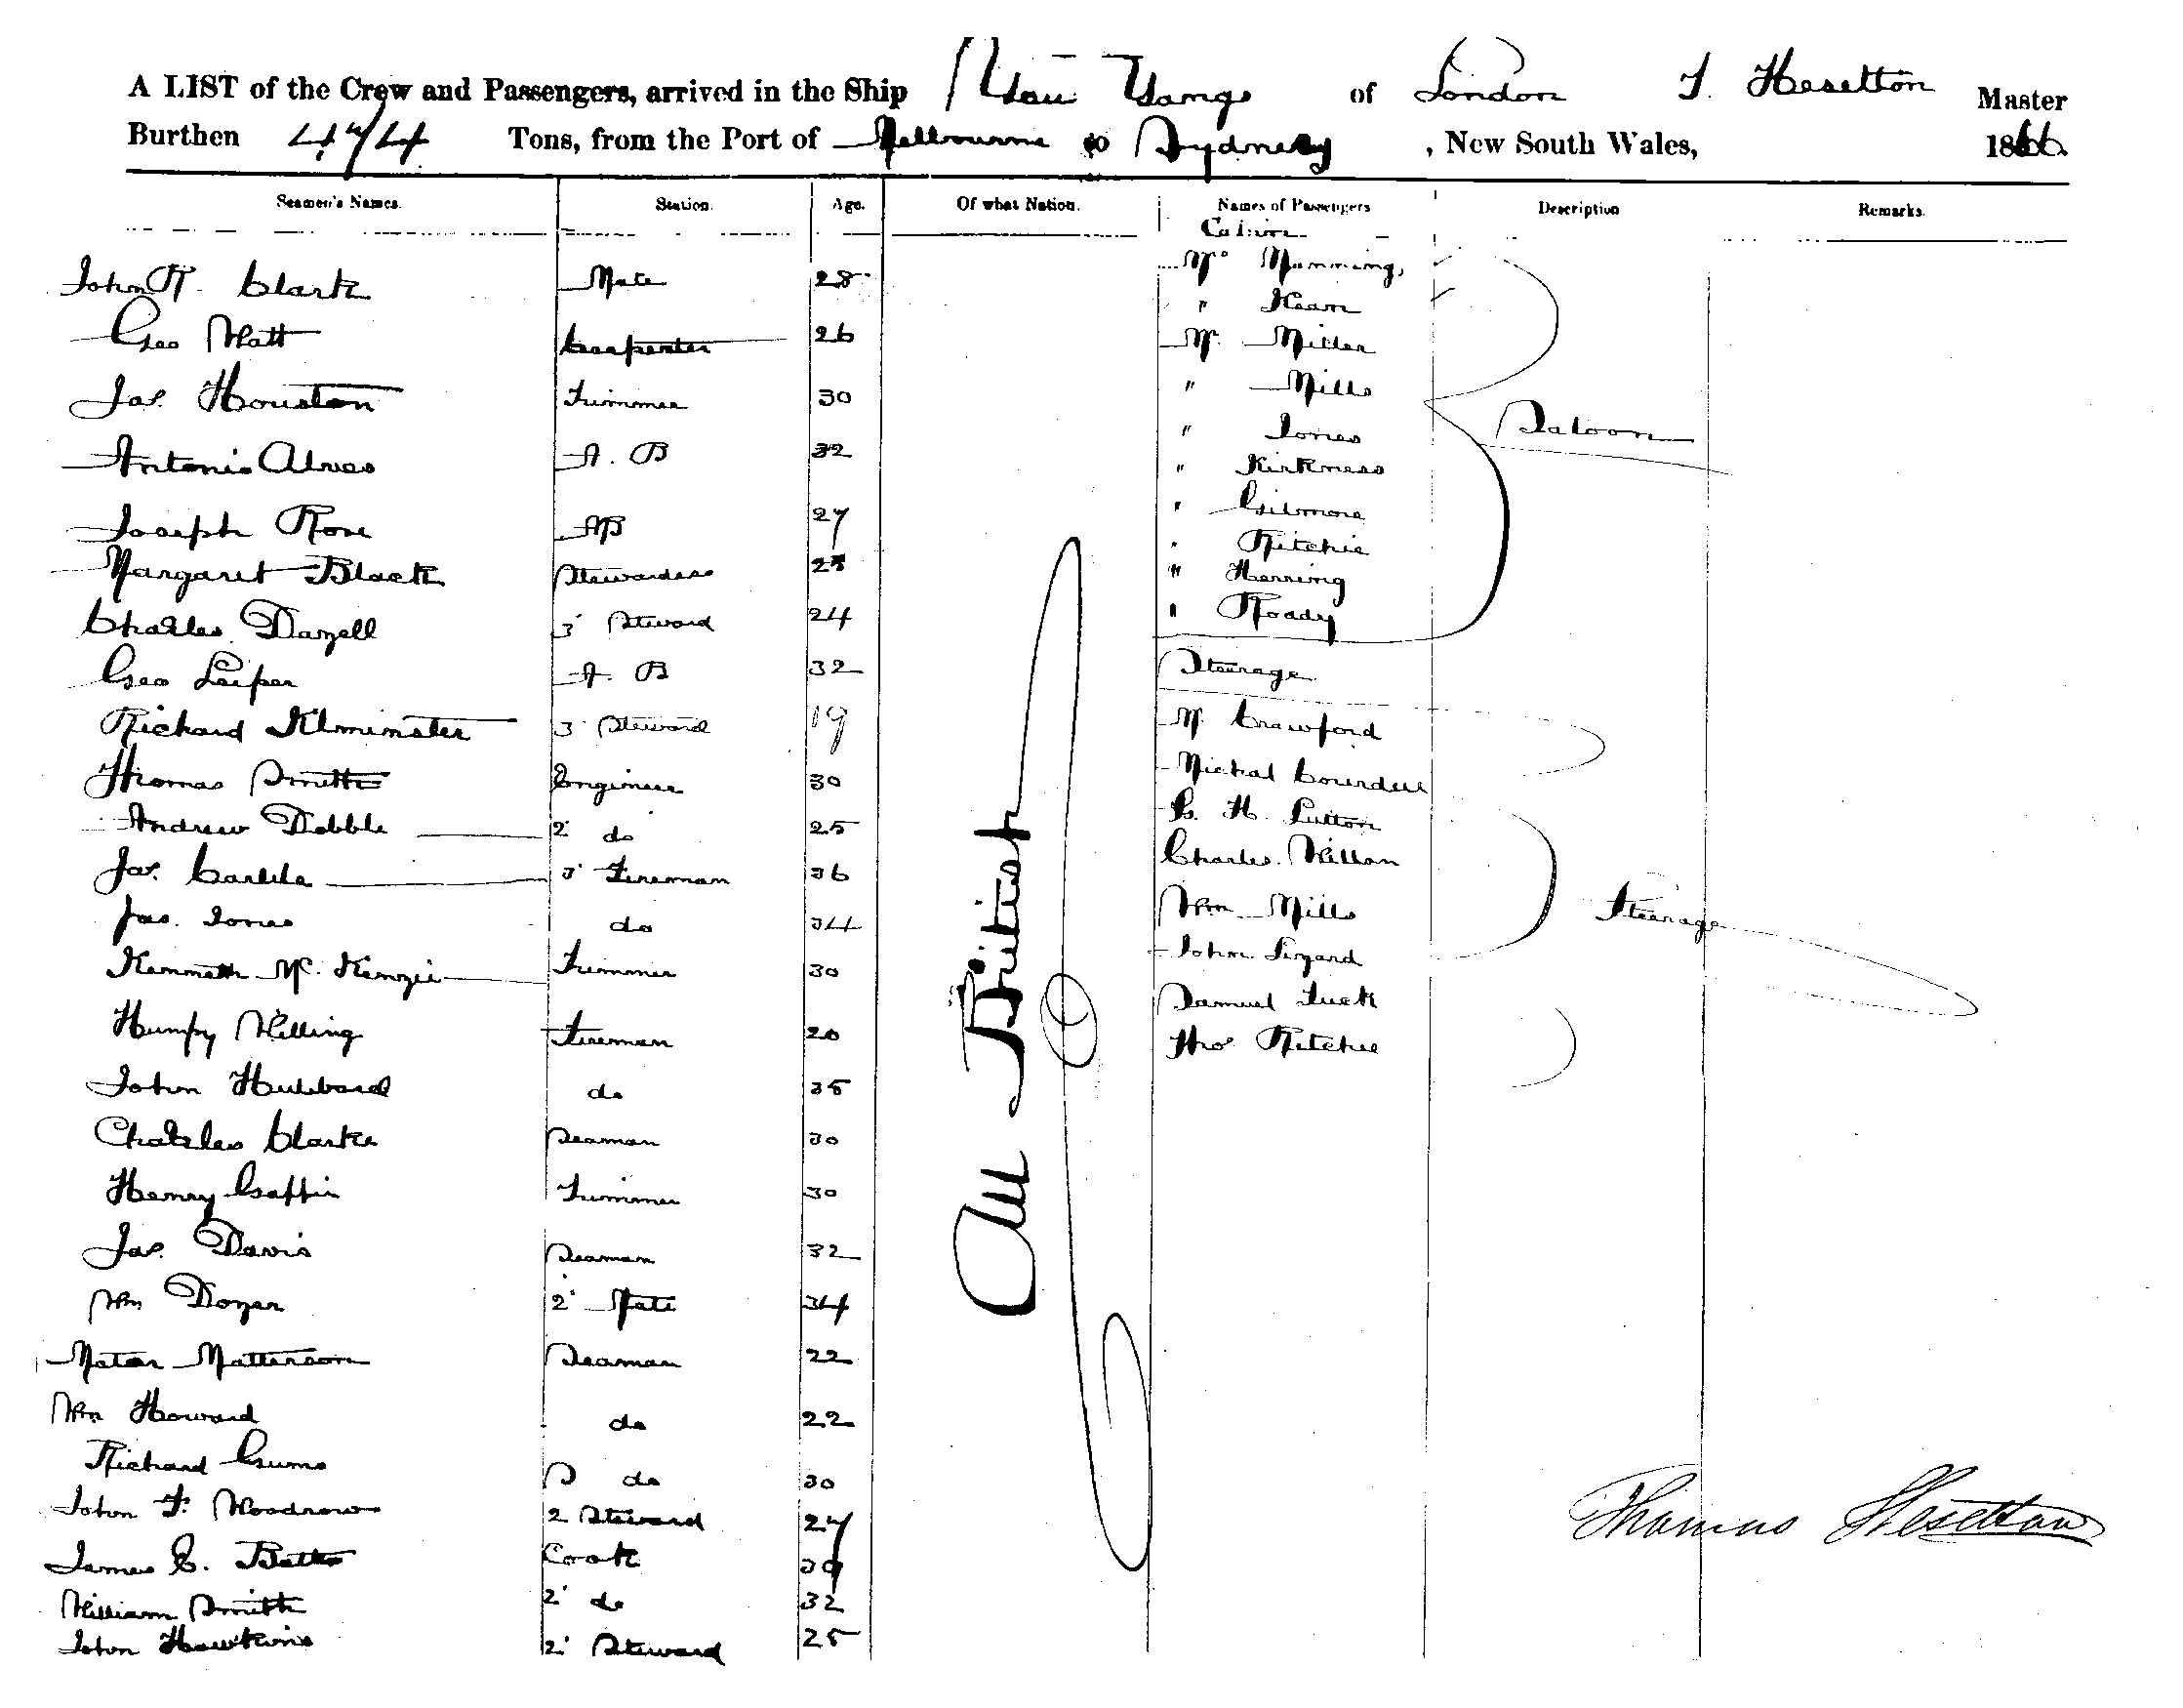 A LIST of the Crew and Passengers, arrived in the Ship You Yangs of London T. Heselton Master
Burthen Tons, from the Port of Melbourne to Sydney, New South Wales, 1866
Seamen's Names. Station. Age. Of what Nation. Names of Passengers Description Remarks.
Cabin
John R. Clark Mate 28
Geo Watt Carpenter 26
Jas. Houston Trimmer 30
Antonio Alves A. B 32
Joseph Rose AB 27
Margaret Black Stewardess
Charles Dazell 3 Steward 24
Geo Leiper A. B 32
Richard Kilminster 3 Steward 19
Thomas Smith Engineer 30
Andrew Dobble 2 do 25
Jas. Carlile 3 Fireman 36
Jas. Jones do 34
Kenneth McKenzie Trimmer 30
Humpy Willing Fireman 20
John Hubbard do 35
Charles Clarke Seaman 30
Henry Gaffin Trimmer 30
Jas. Davis Seaman 32
Wm Dozer 2 Mate 34
Matterson Seaman 22
Wm Howard do 22
Richard do 30
John F. Woodrow 2 Steward 27
James C. Cook 39
William Smith 2 do 32
John Hawkins 2 Steward 25
All British
Manning
" Kean
Mr Miller
" Mills
" Jones
" Kirkness
" Gilmore
" Ritchie
" Herring
" Roady
Saloon
Steerage
Mr Crawford
Michal
G. H. Lutton
Charles Wilton
Wm Mills
John Lizard
Samuel Tuck
Thos Ritchie
Steerage
Thomas Heselton